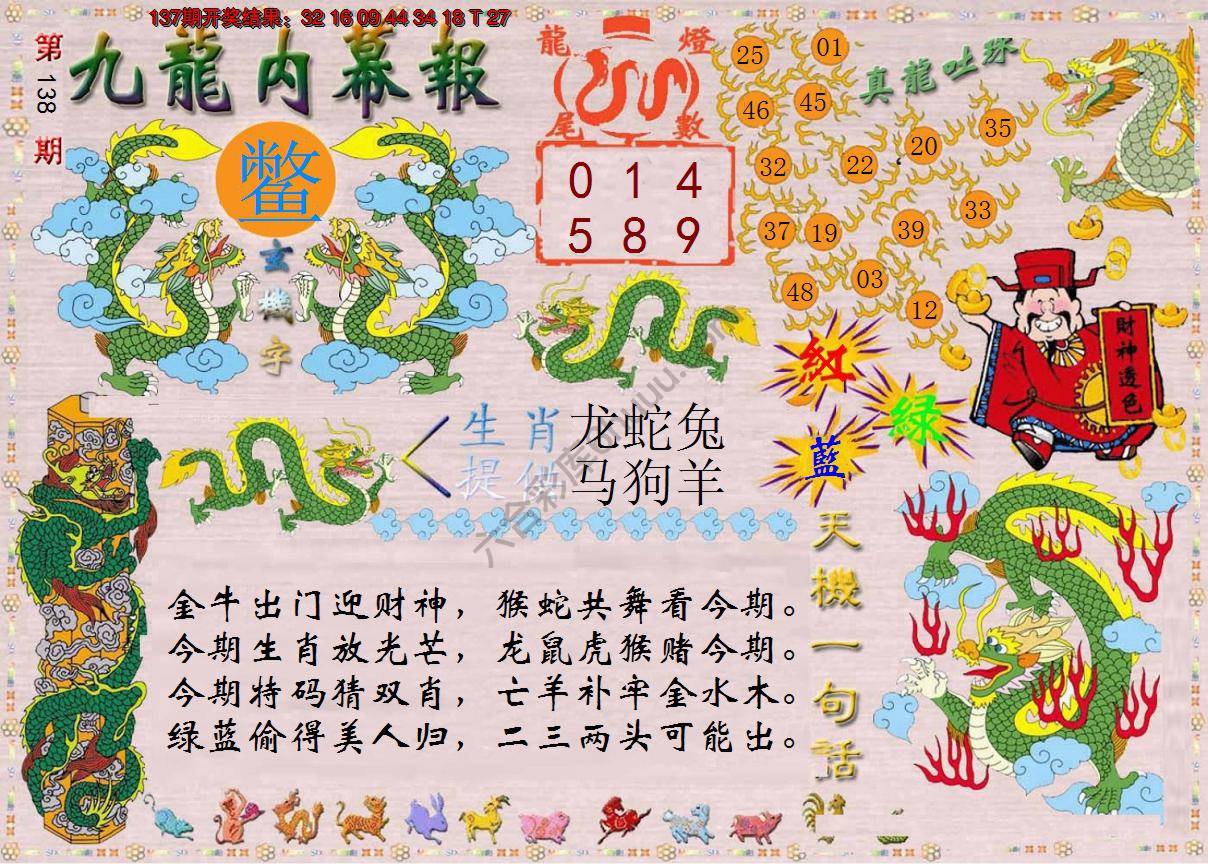 137期开奖结果：32 16 09 44 34 18 T 27
第138期
九龍内幕報
鳖
玄機字
龍燈
尾數
0 1 4
5 8 9
真龍吐珠
25
01
46
45
20
35
32
22
33
37
19
39
48
03
12
財神透色
紅
綠
藍
生肖
提供
龙蛇兔
马狗羊
金牛出门迎财神，猴蛇共舞看今期。
今期生肖放光芒，龙鼠虎猴赌今期。
今期特码猜双肖，亡羊补牢金水木。
绿蓝偷得美人归，二三两头可能出。
天機一句話